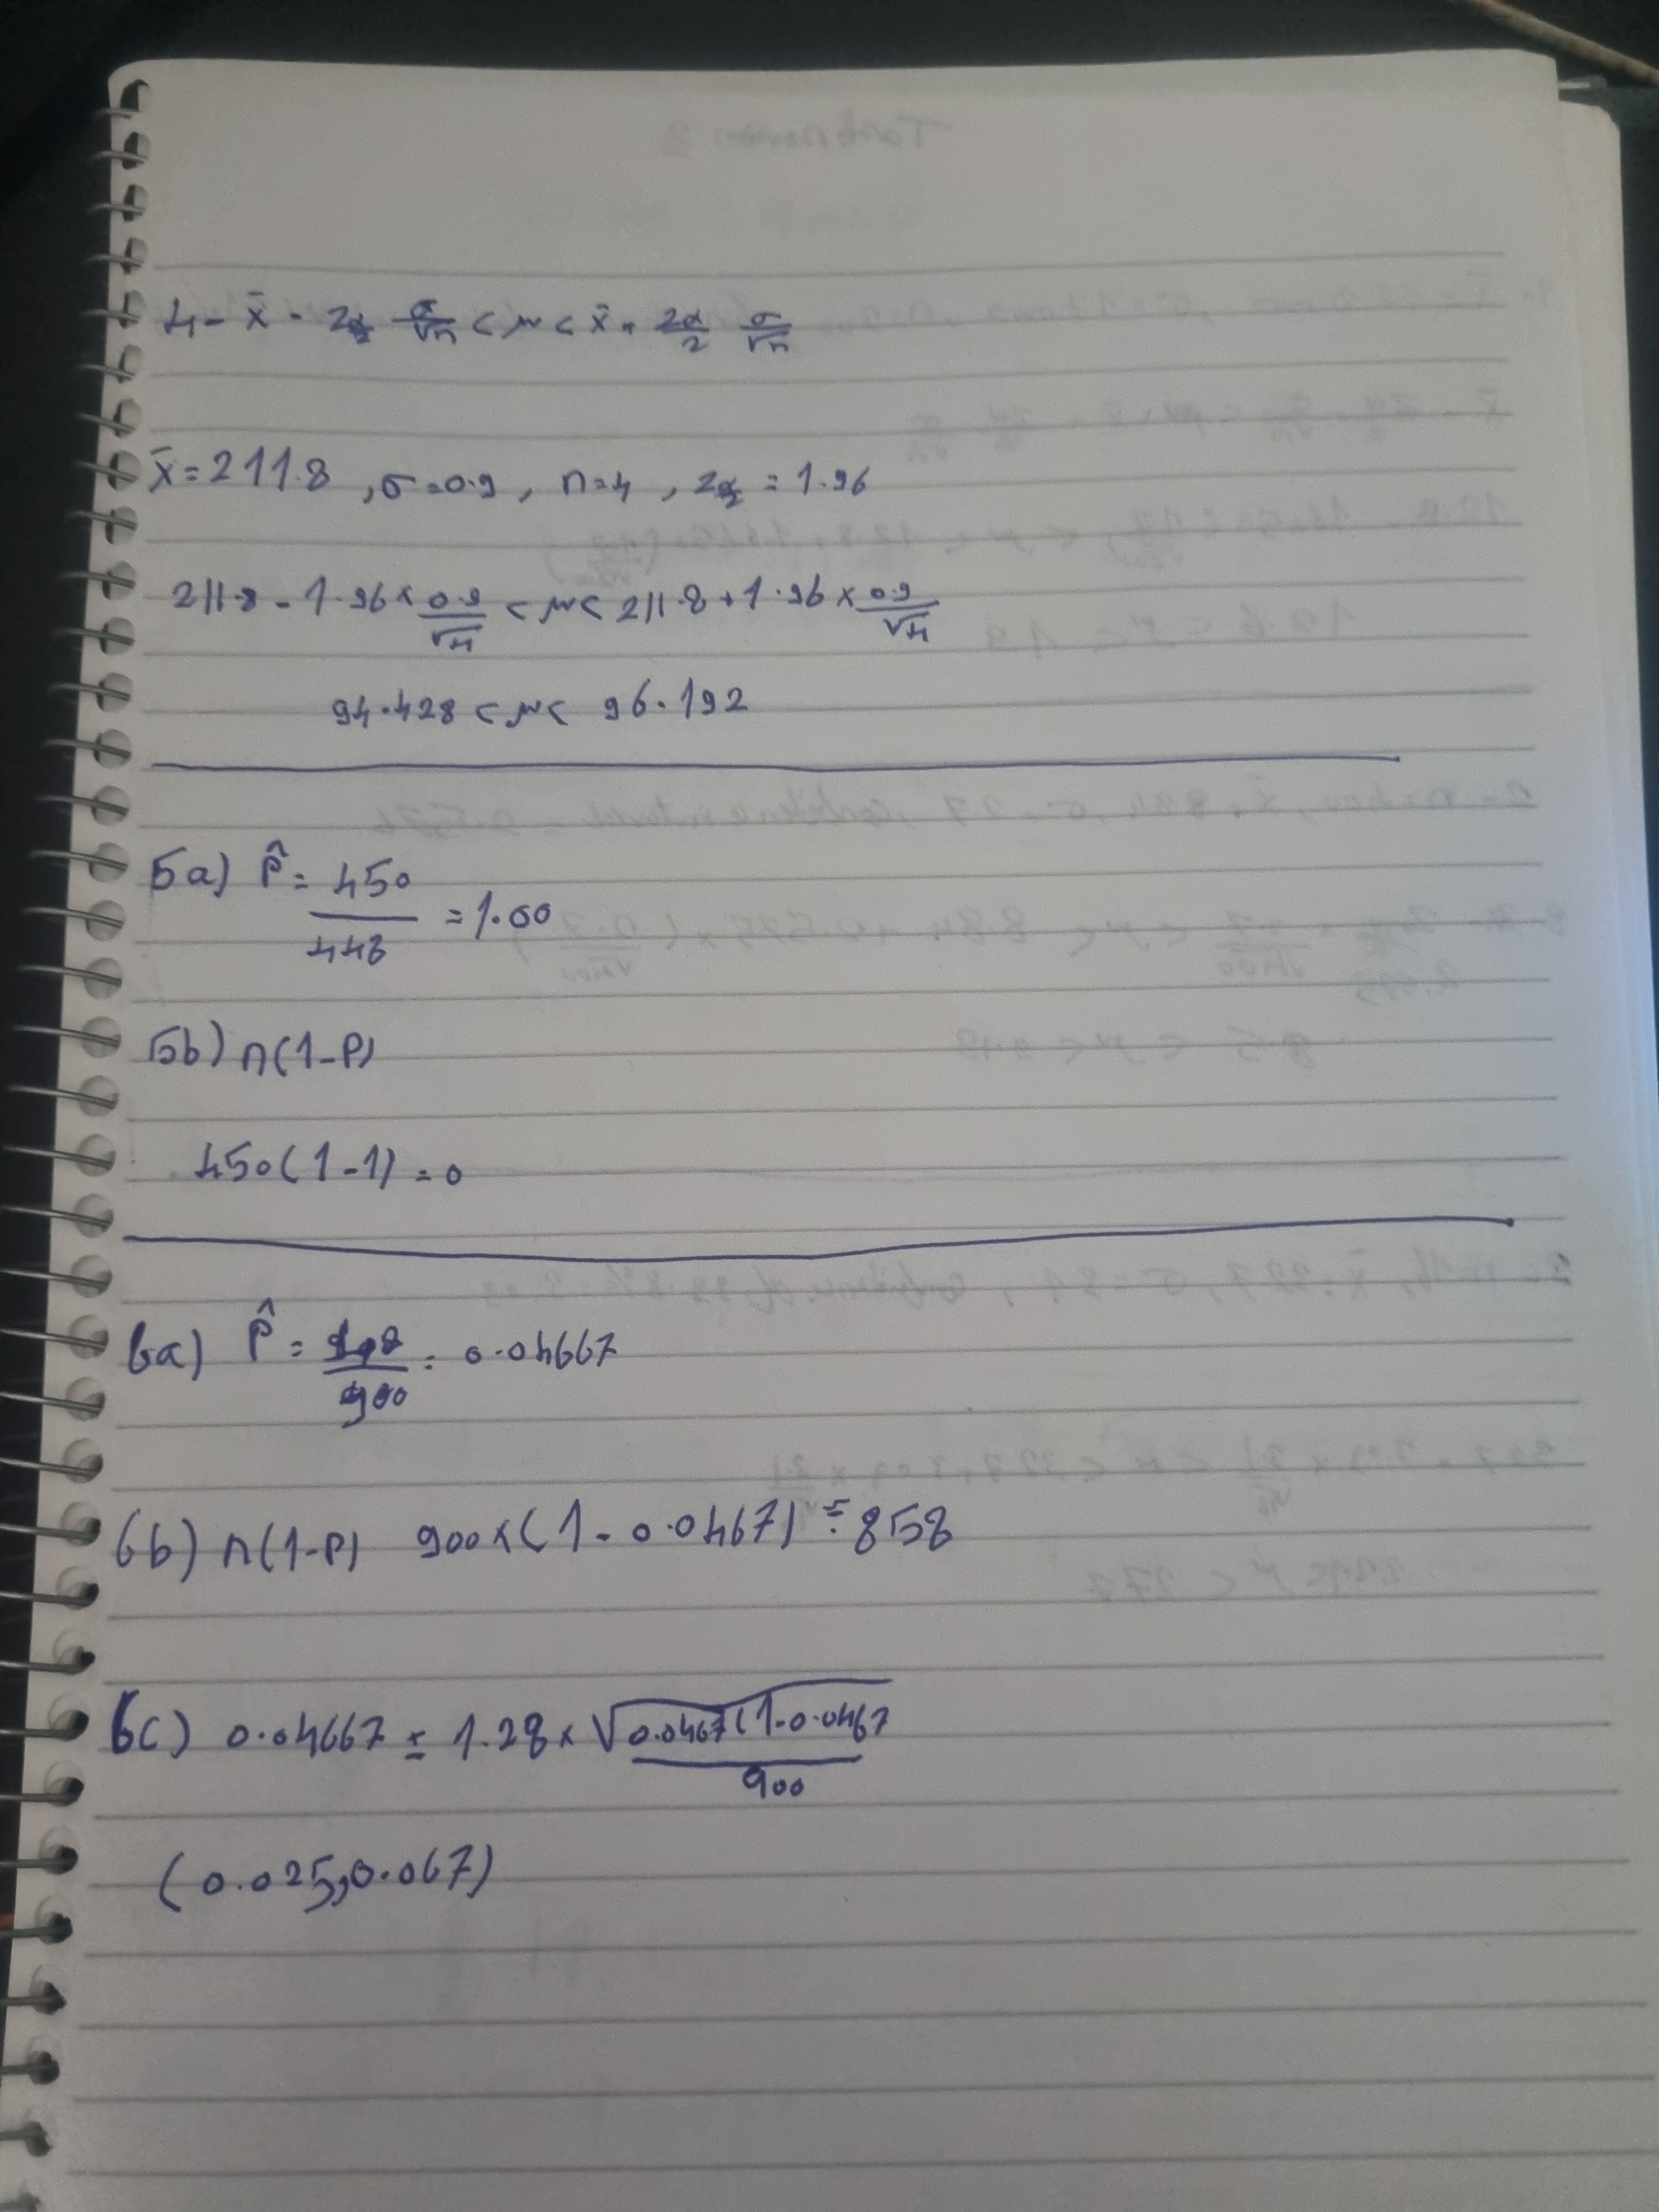 4- x̄ - Zα/2 σ/√n < μ < x̄ + Zα/2 σ/√n
x̄ = 211.8 , σ = 0.9 , n = 4 , Zα/2 = 1.96
211.8 - 1.96 × 0.9/√4 < μ < 211.8 + 1.96 × 0.9/√4
94.428 < μ < 96.192
5a) P̂ = 450/448 = 1.00
5b) n(1-P)
450(1-1) = 0
6a) P̂ = /900 = 0.04667
6b) n(1-P) 900×(1-0.0467) = 858
6c) 0.04667 ± 1.28 × √0.0467(1-0.0467/900
(0.025,0.067)